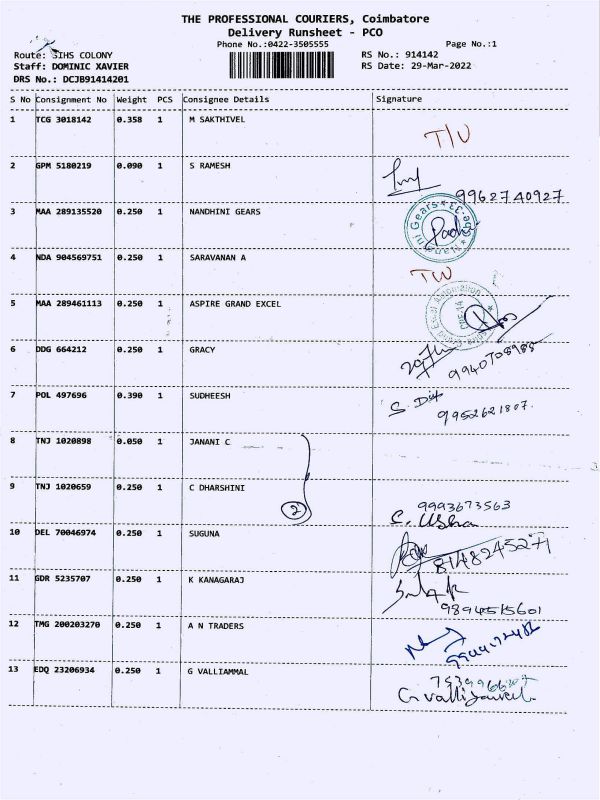 THE PROFESSIONAL COURIERS, Coimbatore
Delivery Runsheet - PCO
Phone No.:0422-3505555
Page No.:1
Route: SIHS COLONY
RS No.: 914142
Staff: DOMINIC XAVIER
RS Date: 29-Mar-2022
DRS No.: DCJB91414201
S No Consignment No Weight PCS Consignee Details Signature
1 TCG 3018142 0.358 1 M SAKTHIVEL
2 GPM 5180219 0.090 1 S RAMESH
9962740927
3 MAA 289135520 0.250 1 NANDHINI GEARS
4 NDA 904569751 0.250 1 SARAVANAN A
5 MAA 289461113 0.250 1 ASPIRE GRAND EXCEL
6 DDG 664212 0.250 1 GRACY
9940708988
7 POL 497696 0.390 1 SUDHEESH
9952621807.
8 TNJ 1020898 0.050 1 JANANI C
9 TNJ 1020659 0.250 1 C DHARSHINI
2
9993673563
C. Usha
10 DEL 70046974 0.250 1 SUGUNA
8148245271
11 GDR 5235707 0.250 1 K KANAGARAJ
9894515601
12 TMG 200203270 0.250 1 A N TRADERS
13 EDQ 23206934 0.250 1 G VALLIAMMAL